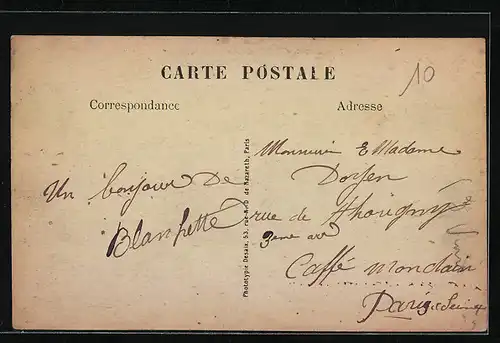 CARTE POSTALE
10
Correspondance
Adresse
Un bonjour De
Blanpette
Phototypie Desaix, 53, rue N.-D. de Nazareth, Paris
Monsieur & Madame
Doyen
rue de Thorigny
3eme arr
Caffé mondain
Paris, Seine